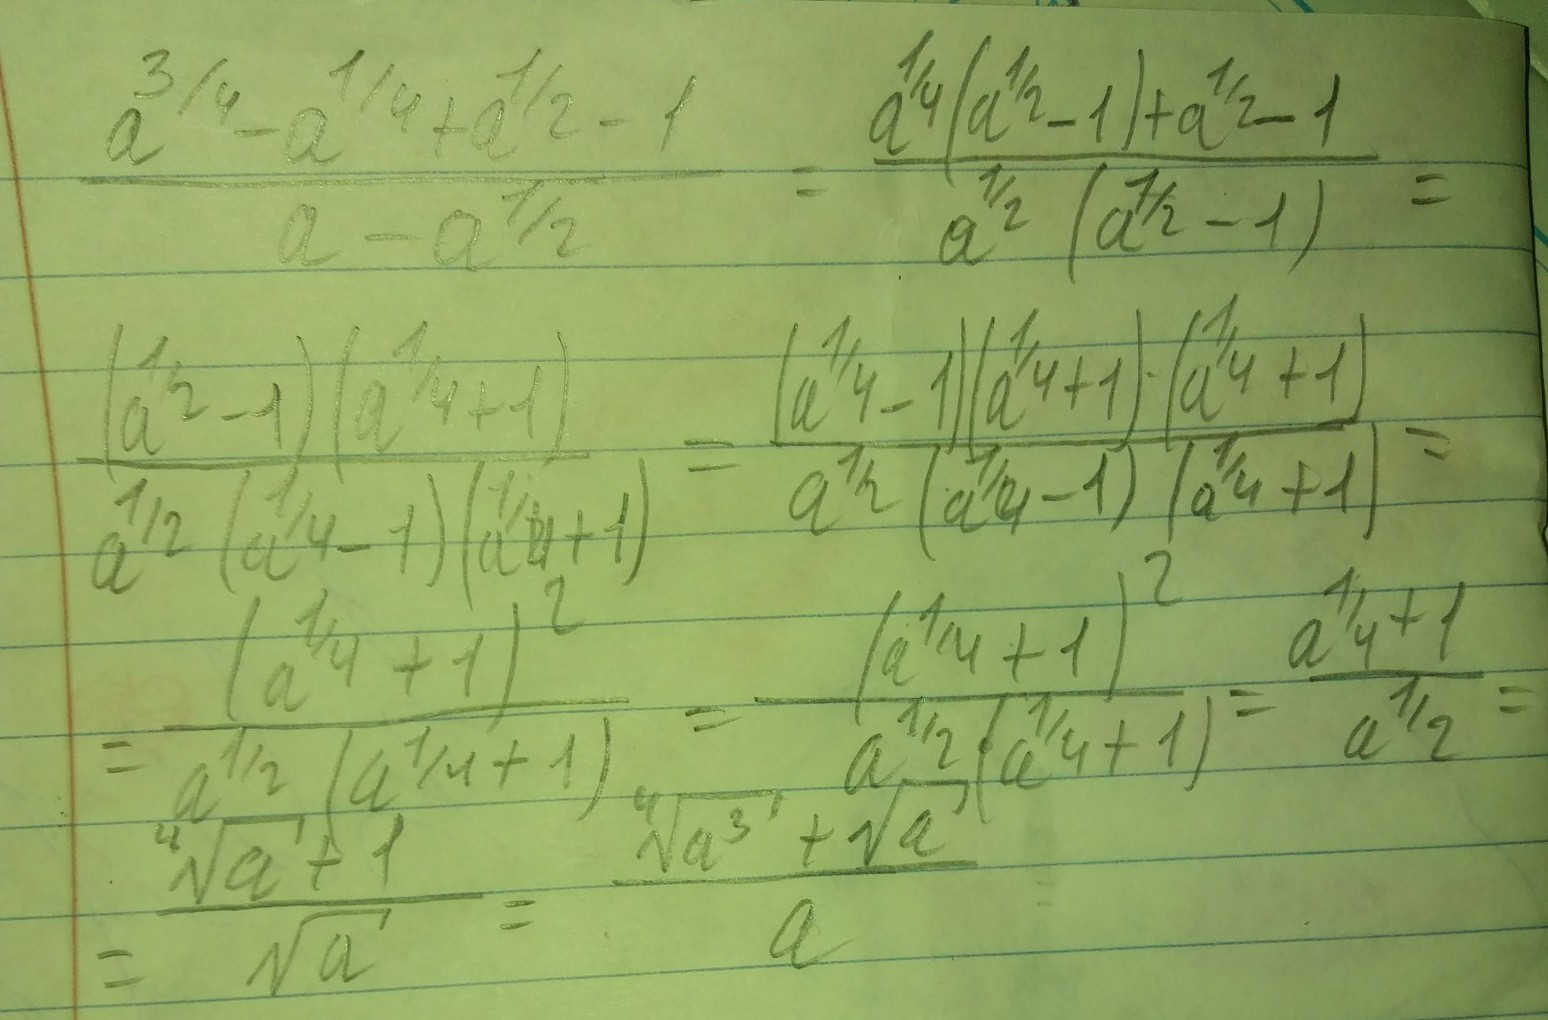 (a^{3/4} - a^{1/4} + a^{1/2} - 1)/(a - a^{1/2}) = (a^{1/4}(a^{1/2} - 1) + a^{1/2} - 1)/(a^{1/2}(a^{1/2} - 1)) =
((a^{1/2} - 1)(a^{1/4} + 1))/(a^{1/2}(a^{1/4} - 1)(a^{1/4} + 1)) = ((a^{1/4} - 1)(a^{1/4} + 1)·(a^{1/4} + 1))/(a^{1/2}(a^{1/4} - 1)(a^{1/4} + 1)) =
= (a^{1/4} + 1)^2/(a^{1/2}(a^{1/4} + 1)) = (a^{1/4} + 1)^2/(a^{1/2}·(a^{1/4} + 1)) = (a^{1/4} + 1)/a^{1/2} =
= (⁴√a + 1)/√a = (⁴√a³ + √a)/a